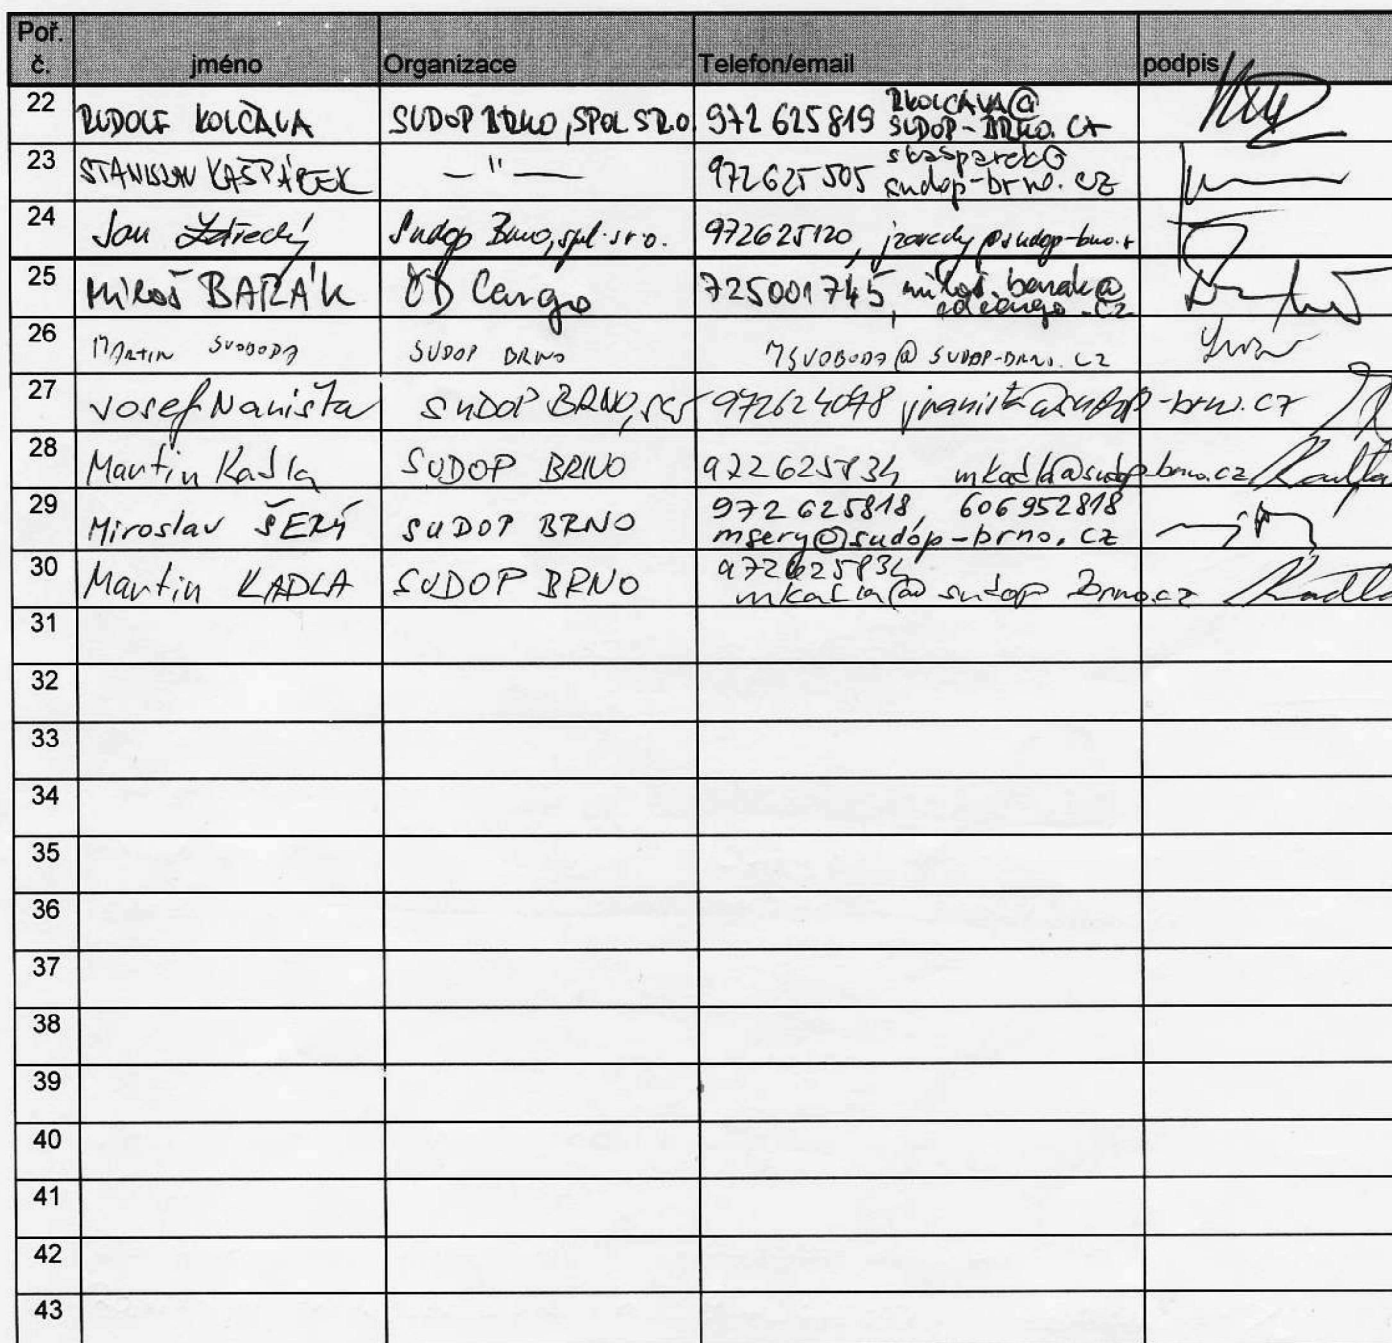 Poř. č. jméno Organizace Telefon/email podpis
22 RUDOLF KOLČAVA SUDOP BRNO, SPOL SR.O 972 625 819 RKOLCAVA@
SUDOP-BRNO.CZ
23 STANISLAV KAŠPÁREK — " — 972625505 skasparek@
sudop-brno.cz
24 Jan Sudop Brno, spol. s r.o. 972625120,
25 MILOŠ BARÁK ČD Cargo 725001745, milos.barak@
cdcargo.cz
26 MARTIN SVOBODA SUDOP BRNO MSVOBODA@SUDOP-BRNO.CZ
27 Josef Naništa SUDOP BRNO, 972624048 jnanista@sudop-brno.cz
28 Martin Kadla SUDOP BRNO mkadla@sudop-brno.cz
29 Miroslav ŠERÝ SUDOP BRNO 972 625818, 606 952818
msery@sudop-brno.cz
30 Martin KADLA SUDOP BRNO
mkadla@sudop Brno.cz
31
32
33
34
35
36
37
38
39
40
41
42
43